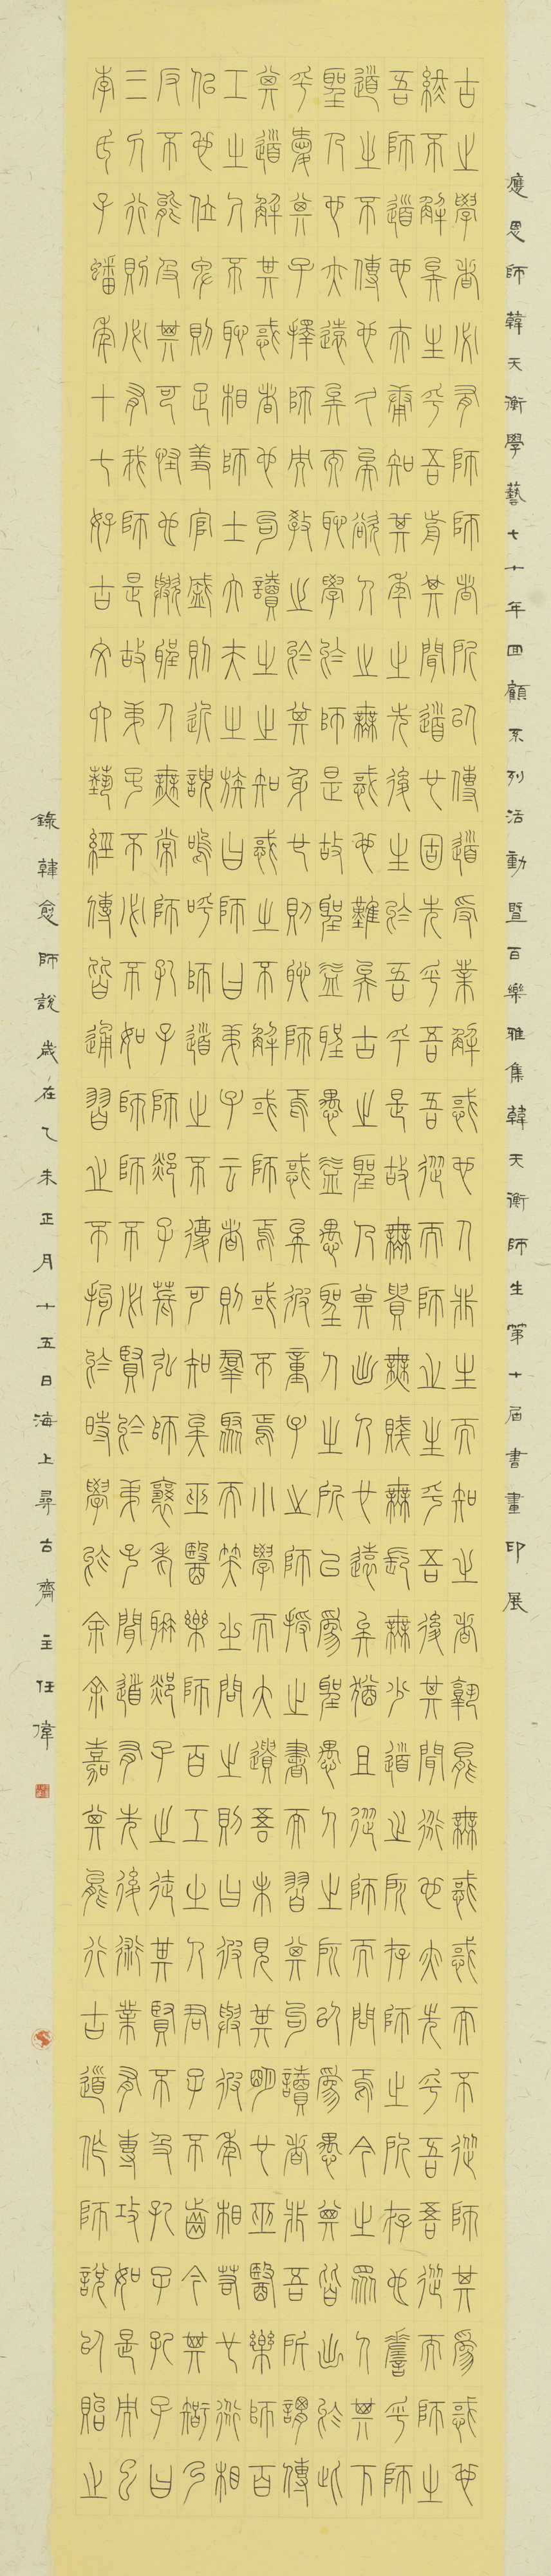 應恩師韓天衡學藝七十年回顧系列活動暨百樂雅集韓天衡師生第十屆書畫印展
古之學者必有師師者所以傳道受業解惑也人非生而知之者孰能無惑惑而不從師其為惑也
終不解矣生乎吾前其聞道也固先乎吾吾從而師之生乎吾後其聞道也亦先乎吾吾從而師之
吾師道也夫庸知其年之先後生於吾乎是故無貴無賤無長無少道之所存師之所存也嗟乎師
道之不傳也久矣欲人之無惑也難矣古之聖人其出人也遠矣猶且從師而問焉今之眾人其下
聖人也亦遠矣而恥學於師是故聖益聖愚益愚聖人之所以為聖愚人之所以為愚其皆出於此
乎愛其子擇師而教之於其身也則恥師焉惑矣彼童子之師授之書而習其句讀者非吾所謂傳
其道解其惑者也句讀之不知惑之不解或師焉或不焉小學而大遺吾未見其明也巫醫樂師百
工之人不恥相師士大夫之族曰師曰弟子云者則群聚而笑之問之則曰彼與彼年相若也道相
似也位卑則足羞官盛則近諛嗚呼師道之不復可知矣巫醫樂師百工之人君子不齒今其智乃
反不能及其可怪也歟聖人無常師孔子師郯子萇弘師襄老聃郯子之徒其賢不及孔子孔子曰
三人行則必有我師是故弟子不必不如師師不必賢於弟子聞道有先後術業有專攻如是而已
李氏子蟠年十七好古文六藝經傳皆通習之不拘於時學於余余嘉其能行古道作師說以貽之
錄韓愈師說歲在乙未正月十五日海上尋古齋主任偉